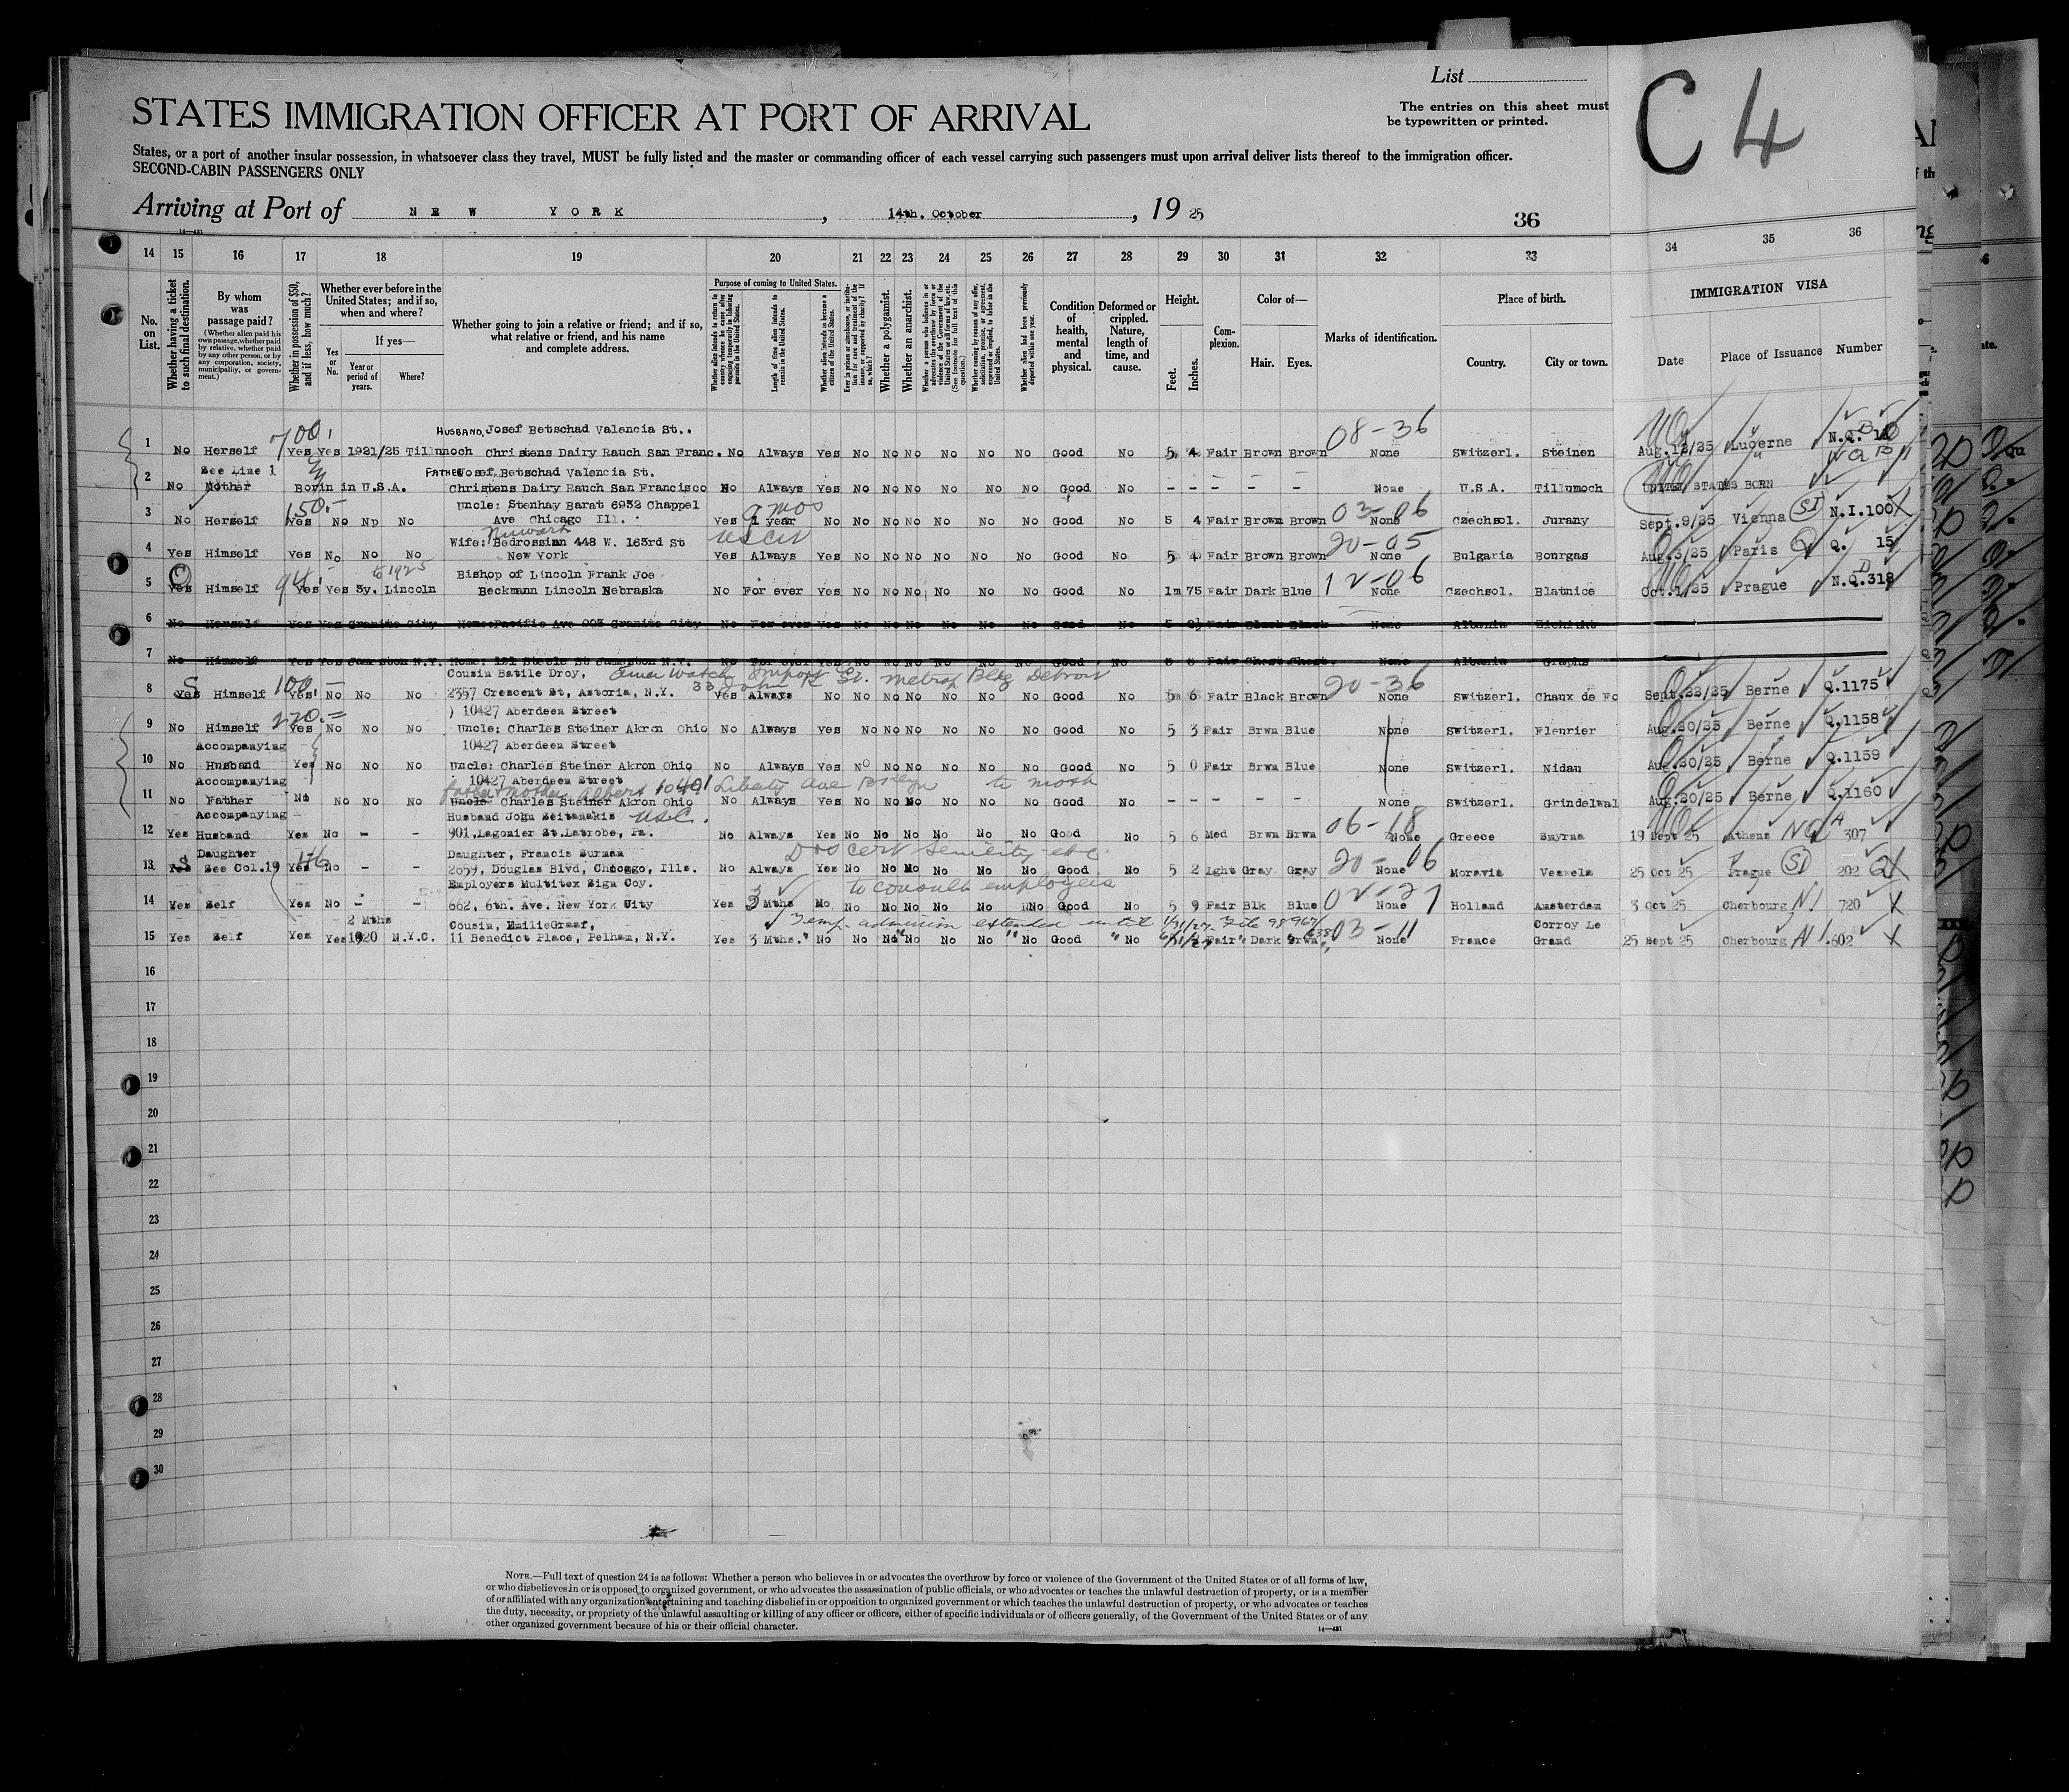 List
The entries on this sheet must
be typewritten or printed.
C 4
STATES IMMIGRATION OFFICER AT PORT OF ARRIVAL
States, or a port of another insular possession, in whatsoever class they travel, MUST be fully listed and the master or commanding officer of each vessel carrying such passengers must upon arrival deliver lists thereof to the immigration officer.
SECOND-CABIN PASSENGERS ONLY
Arriving at Port of NEW YORK, 14th. October, 19 25
36
14 15 16 17 18 19 20 21 22 23 24 25 26 27 28 29 30 31 32 33 34 35 36
No. on List.
Whether having a ticket to such final destination.
By whom was passage paid?
(Whether alien paid his own passage, whether paid by relative, whether paid by any other person, or by any corporation, society, municipality, or government.)
Whether in possession of $50, and if less, how much?
Whether ever before in the United States; and if so, when and where?
Yes or No.
If yes—
Year or period of years.
Where?
Whether going to join a relative or friend; and if so, what relative or friend, and his name and complete address.
Purpose of coming to United States.
Whether alien intends to return to country whence he came after engaging temporarily in laboring pursuits in the United States.
Length of time alien intends to remain in the United States.
Whether alien intends to become a citizen of the United States.
Whether a polygamist.
Whether an anarchist.
Condition of health, mental and physical.
Deformed or crippled. Nature, length of time, and cause.
Height.
Feet. Inches.
Complexion.
Color of—
Hair. Eyes.
Marks of identification.
Place of birth.
Country. City or town.
IMMIGRATION VISA
Date Place of Issuance Number
700 HUSBAND, Josef Betschad Valencia St.. 08-36
1 No Herself Yes Yes 1921/25 Tillumoch Christens Dairy Rauch San Franc. No Always Yes No No No No No No Good No 5 4 Fair Brown Brown None Switzerl. Steinen Aug.12/25 Lucerne N.Q.
See Line 1 FATHER Josef Betschad Valencia St.
2 No Mother Born in U.S.A. Christens Dairy Rauch San Francisco No Always Yes No No No No No No Good No - - - - - None U.S.A. Tillumoch UNITED STATES BORN
150.- Uncle: Stenhay Barat 6932 Chappel 9 mos 03-06
3 No Herself Yes No No No Ave Chicago Ill. Yes 1 year No No No No No No No Good No 5 4 Fair Brown Brown None Czechsol. Jurany Sept.9/25 Vienna SI N.I.100
Wife: Bedrossian 448 W. 163rd St 20-05
4 Yes Himself Yes No No No New York Yes Always Yes No No No No No No Good No 5 4 Fair Brown Brown None Bulgaria Bourgas Aug.3/25 Paris Q. 15
to 1925 Bishop of Lincoln Frank Joe 12-06
5 Yes Himself 94 Yes Yes 3y. Lincoln Beckmann Lincoln Nebraska No For ever Yes No No No No No No Good No 1m 75 Fair Dark Blue None Czechsol. Blatnice Oct.1/25 Prague N.Q.318 D
6 No Herself Yes Yes Granite City Home: Pacific Ave 903 Granite City No For ever Yes No No No No No No Good No Fair Black Black None Albania
7 No Himself Yes Yes Jameston N.Y. Home: 121 Steele St Jameston N.Y. No For ever Yes No No No No No No Good No Fair Chest Chest. None Albania
100- Cousin Batile Droy, Amer Watch Import Co. Metrop Bldg Detroit 20-36
8 Yes Himself Yes No No No 2357 Crescent St, Astoria, N.Y. Yes Always No No No No No No No Good No 5 6 Fair Black Brown None Switzerl. Chaux de Fo Sept.22/25 Berne Q.1175
270.- ) 10427 Aberdeen Street
9 No Himself Yes No No No Uncle: Charles Steiner Akron Ohio No Always Yes No No No No No No Good No 5 3 Fair Brwn Blue None Switzerl. Fleurier Aug.20/25 Berne Q.1158
Accompanying 10427 Aberdeen Street
10 No Husband Yes No No No Uncle: Charles Steiner Akron Ohio No Always Yes No No No No No No Good No 5 0 Fair Brwn Blue None Switzerl. Nidau Aug.20/25 Berne Q.1159
Accompanying 10427 Aberdeen Street
father & mother Albert 10401 Liberty Ave Bklyn
11 No Father No No No No Uncle Charles Steiner Akron Ohio No Always Yes No No No No No No Good No - - - - - None Switzerl. Grindelwal Aug.20/25 Berne Q.1160
Accompanying Husband John Zeitanakis U.S.C. 06-18
12 Yes Husband Yes No - - 901, Lagonier St. Latrobe, Pa. No Always Yes No No No No No No Good No 5 6 Med Brwn Brwn None Greece Smyrna 19 Sept 25 Athens NQ A 307
Daughter 176 Daughter, Francis Surman 20-06
13 Yes See Col.19 Yes No - - 2659, Douglas Blvd, Chicaggo, Ills. No Always Yes No No No No No No Good No 5 2 Lght Gray Gray None Moravia Veswels 25 Oct 25 Prague SI 202
Employers Multitex Sign Coy. to consult employers 02-27
14 Yes Self Yes No - - 662, 6th. Ave. New York City Yes 3 Mths No No No No No No No Good No 5 9 Fair Blk Blue None Holland Amsterdam 3 Oct 25 Cherbourg NI 720
2 Mths Cousin, Emilie Graaf, Temp. admission extended until 1/31/27. File 98967/638 03-11 Corroy Le
15 Yes Self Yes Yes 1920 N.Y.C. 11 Benedict Place, Pelham, N.Y. Yes 3 Mths. No No No No No No No Good No Fair Dark Brwn None France Grand 25 Sept 25 Cherbourg NI 602
16
17
18
19
20
21
22
23
24
25
26
27
28
29
30
NOTE.—Full text of question 24 is as follows: Whether a person who believes in or advocates the overthrow by force or violence of the Government of the United States or of all forms of law,
or who disbelieves in or is opposed to organized government, or who advocates the assassination of public officials, or who advocates or teaches the unlawful destruction of property, or is a member
of or affiliated with any organization entertaining and teaching disbelief in or opposition to organized government or which teaches the unlawful destruction of property, or who advocates or teaches
the duty, necessity, or propriety of the unlawful assaulting or killing of any officer or officers, either of specific individuals or of officers generally, of the Government of the United States or of any
other organized government because of his or their official character.
14—431